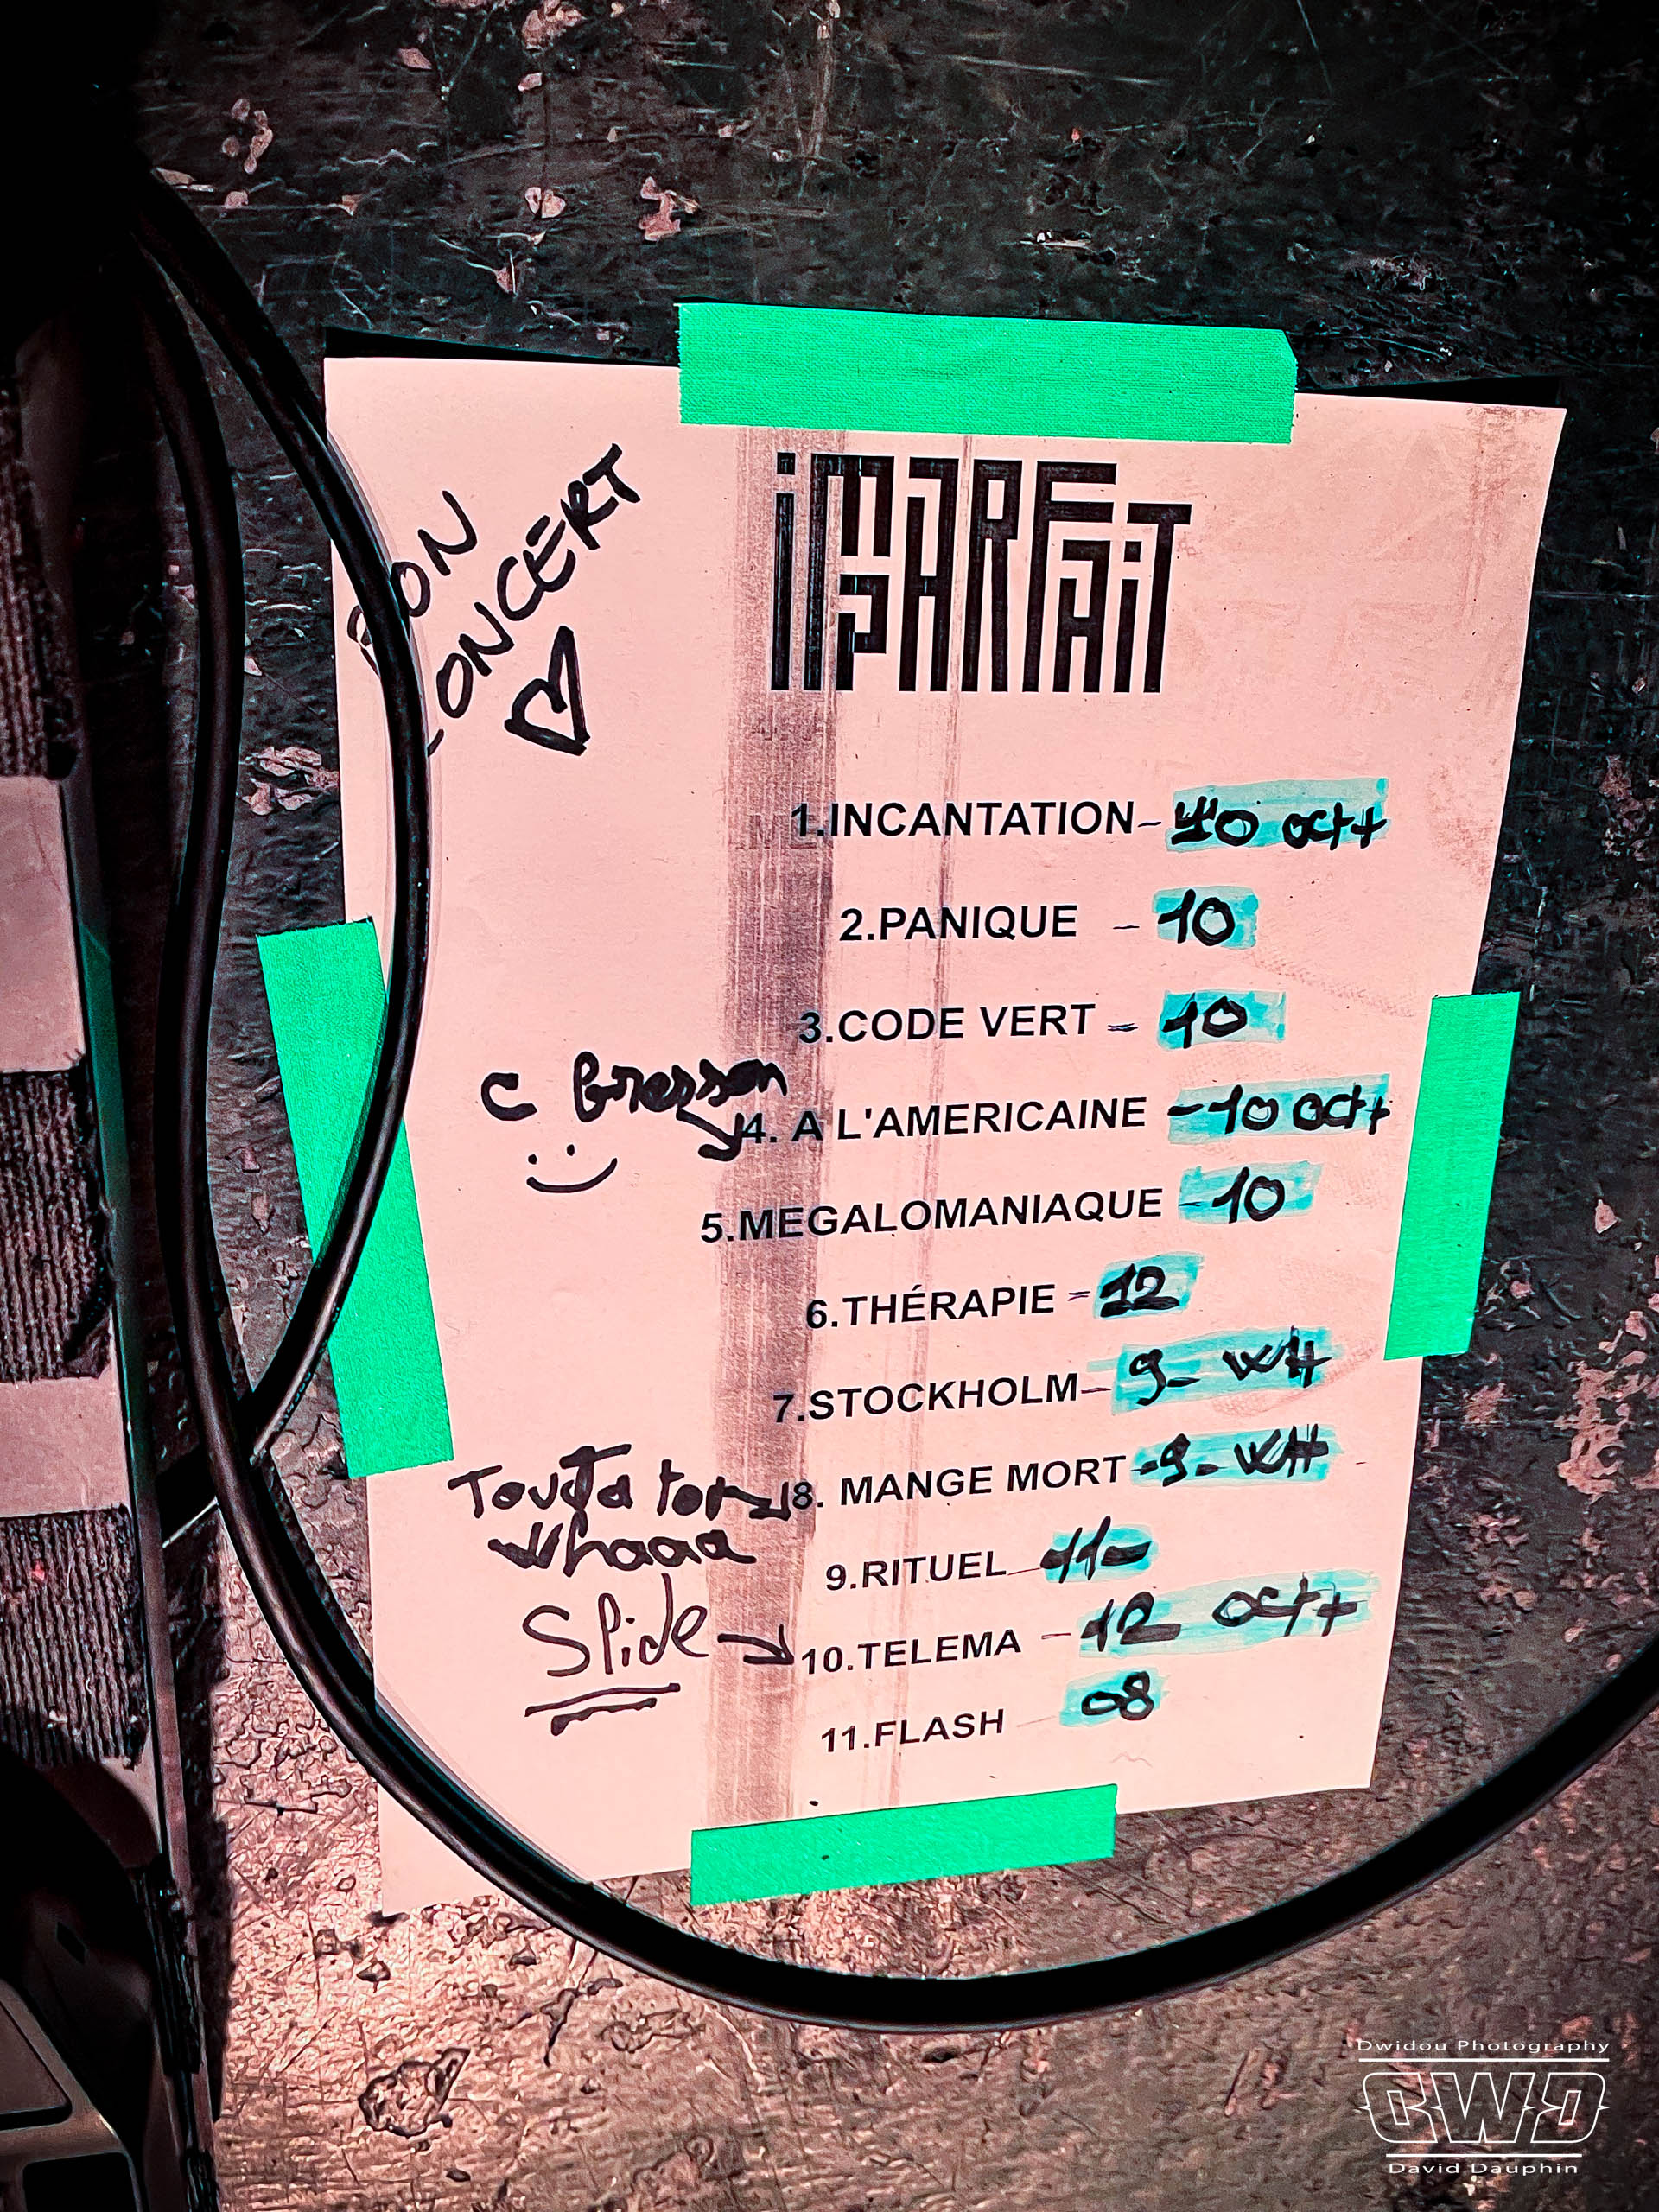 BON
CONCERT
iMPARFAiT
1.INCANTATION - 10 OCT+
2.PANIQUE - 10
3.CODE VERT - 10
C Bresson
4. A L'AMERICAINE - 10 OCT+
5.MEGALOMANIAQUE - 10
6.THÉRAPIE - 12
7.STOCKHOLM - 9 - WH
8. MANGE MORT - 9 - WH
Whaaa
9.RITUEL - 11 -
Slide
10.TELEMA - 12 OCT+
11.FLASH - 08
Dwidou Photography
DWD
David Dauphin